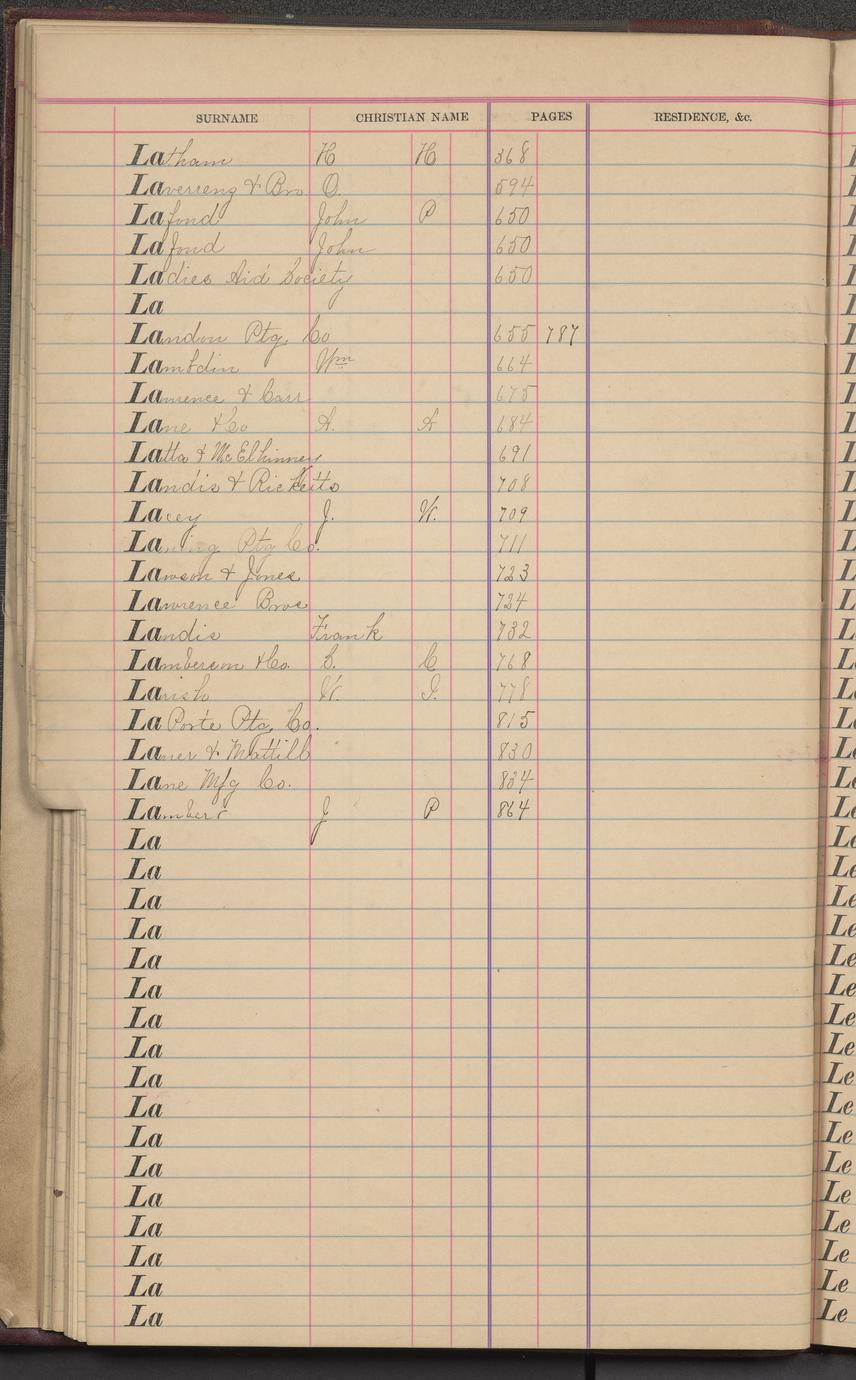 SURNAME CHRISTIAN NAME PAGES RESIDENCE, &c.
Latham H H 368
Laverreng & Bro O. 594
Lafond John P 650
Lafond John 650
Ladies Aid Society 650
La
Landon Ptg. Co 655 787
Lambdin Wm 664
Lawrence & Carr 675
Lane & Co A. A 684
Latta & McElhinney 691
Landis & Ricketts 708
Lacey J. W. 709
Ptg Co. 711
Lawson & Jones 723
Lawrence Bros 724
Landis Frank 732
Lamberson & Co. S. C 768
Larish W. I. 778
La Porte Ptg. Co. 815
Lauer & Mattill 830
Lane Mfg Co. 834
Lambert J P 864
La
La
La
La
La
La
La
La
La
La
La
La
La
La
La
La
La
Le
Le
Le
Le
Le
Le
Le
Le
Le
Le
Le
Le
Le
Le
Le
Le
Le